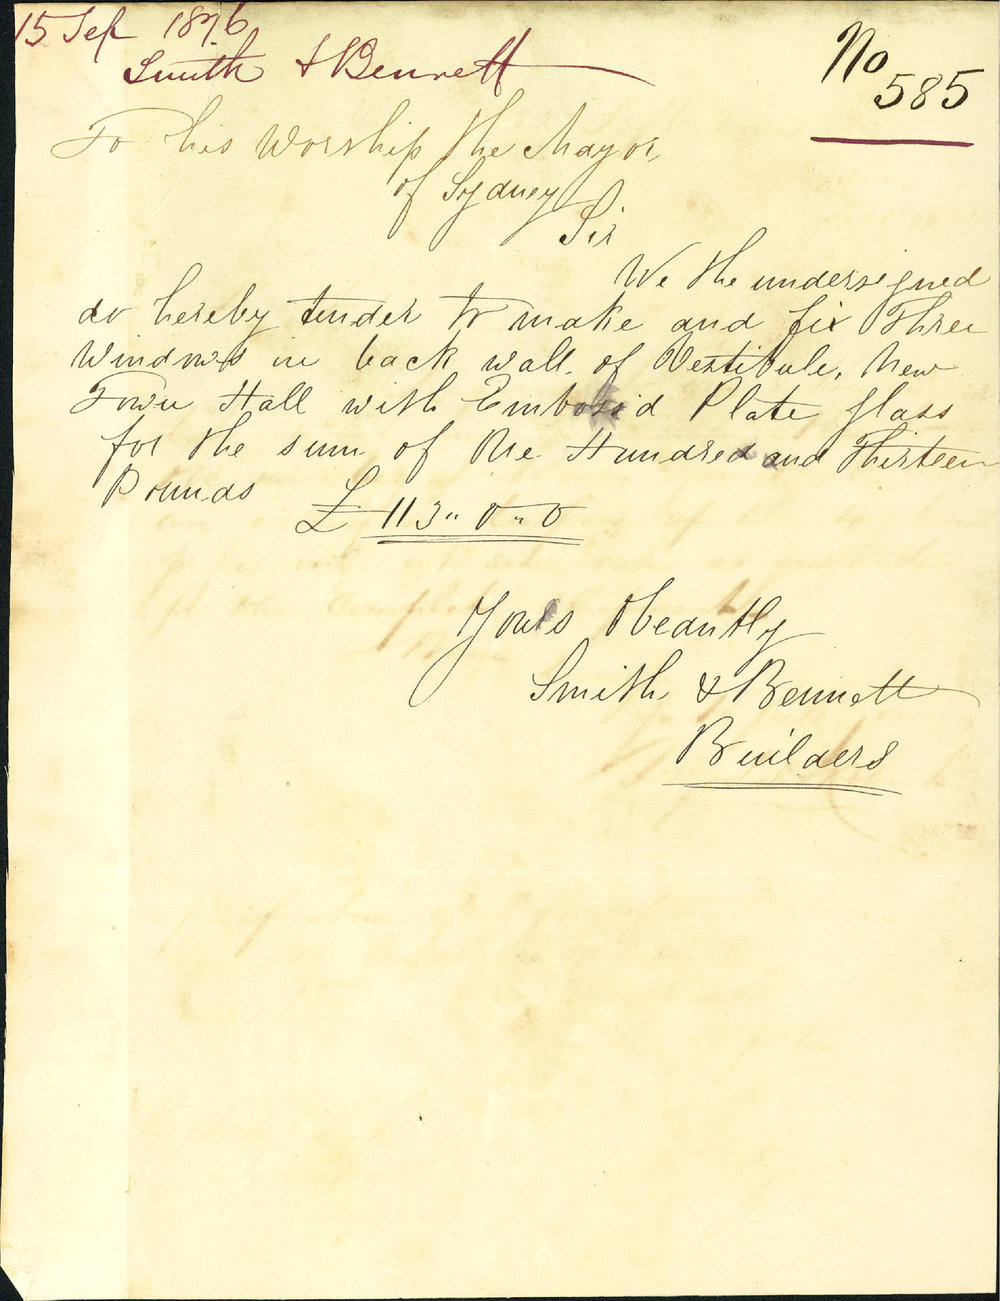 15 Sep 1876
Smith & Bennett
No
585
To his Worship the Mayor
of Sydney
Sir
We the undersigned
do hereby tender to make and fix Three
Windows in back wall of Vestibule, New
Town Hall with Embosed Plate glass
for the sum of One Hundred and Thirteen
Pounds £ 113 " 0 " 0
Yours Obeantly
Smith & Bennett
Builders